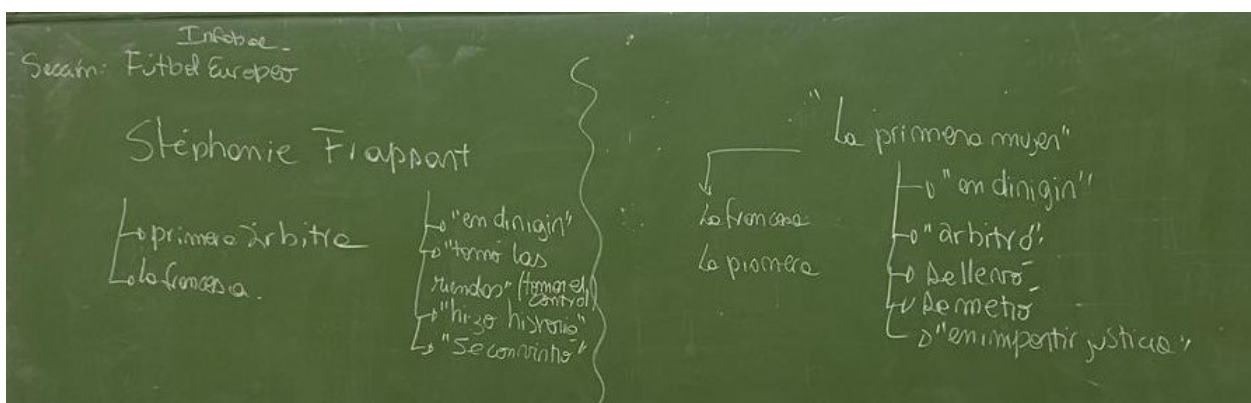 Infobae.
Sección: Fútbol Europeo
Stéphanie Frappart
primera árbitra
la francesa.
"en dirigir"
"tomó las
riendas" (tomar el
control)
"hizo historia"
"Se convirtió"
"La primera mujer"
La francesa
La pionera
"en dirigir"
"arbitró"
Se llevó
Se metió
"en impartir justicia"